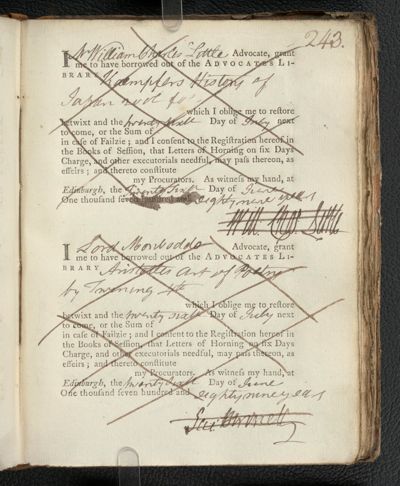 243.
I Mr William Charles Little Advocate, grant
me to have borrowed out of the ADVOCATES LI-
BRARY Kaempfers History of
Japan
which I oblige me to restore
betwixt and the twenty sixth Day of July next
to come, or the Sum of
in case of Failzie; and I consent to the Registration hereof in
the Books of Session, that Letters of Horning on six Days
Charge, and other executorials needful, may pass thereon, as
effeirs; and thereto constitute
my Procurators. As witness my hand, at
Edinburgh, the twenty sixth Day of June
One thousand seven hundred and eighty nine years
Will Chas. Little
I Lord Monboddo Advocate, grant
me to have borrowed out of the ADVOCATES LI-
BRARY Aristotles Art of Poetry
by Twining 4to
which I oblige me to restore
betwixt and the twenty sixth Day of July next
to come, or the Sum of
in case of Failzie; and I consent to the Registration hereof in
the Books of Session, that Letters of Horning on six Days
Charge, and other executorials needful, may pass thereon, as
effeirs; and thereto constitute
my Procurators. As witness my hand, at
Edinburgh, the twenty sixth Day of June
One thousand seven hundred and eighty nine years